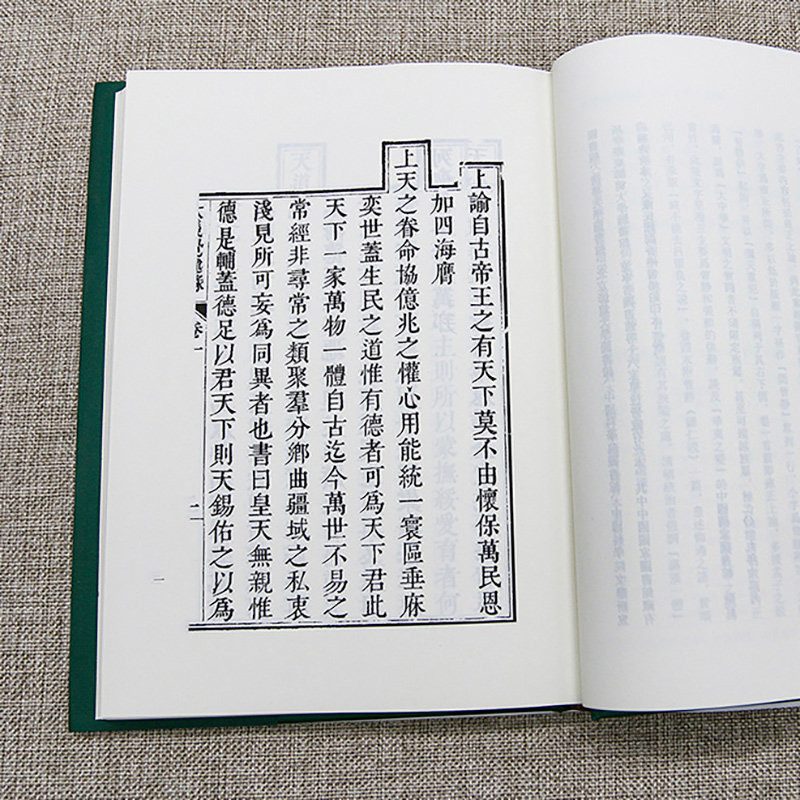 上諭自古帝王之有天下莫不由懷保萬民恩
加四海膺
上天之眷命協億兆之懽心用能統一寰區垂庥
奕世蓋生民之道惟有德者可爲天下君此
天下一家萬物一體自古迄今萬世不易之
常經非尋常之類聚羣分鄉曲疆域之私衷
淺見所可妄爲同異者也書曰皇天無親惟
德是輔蓋德足以君天下則天錫佑之以爲
卷一
一
一